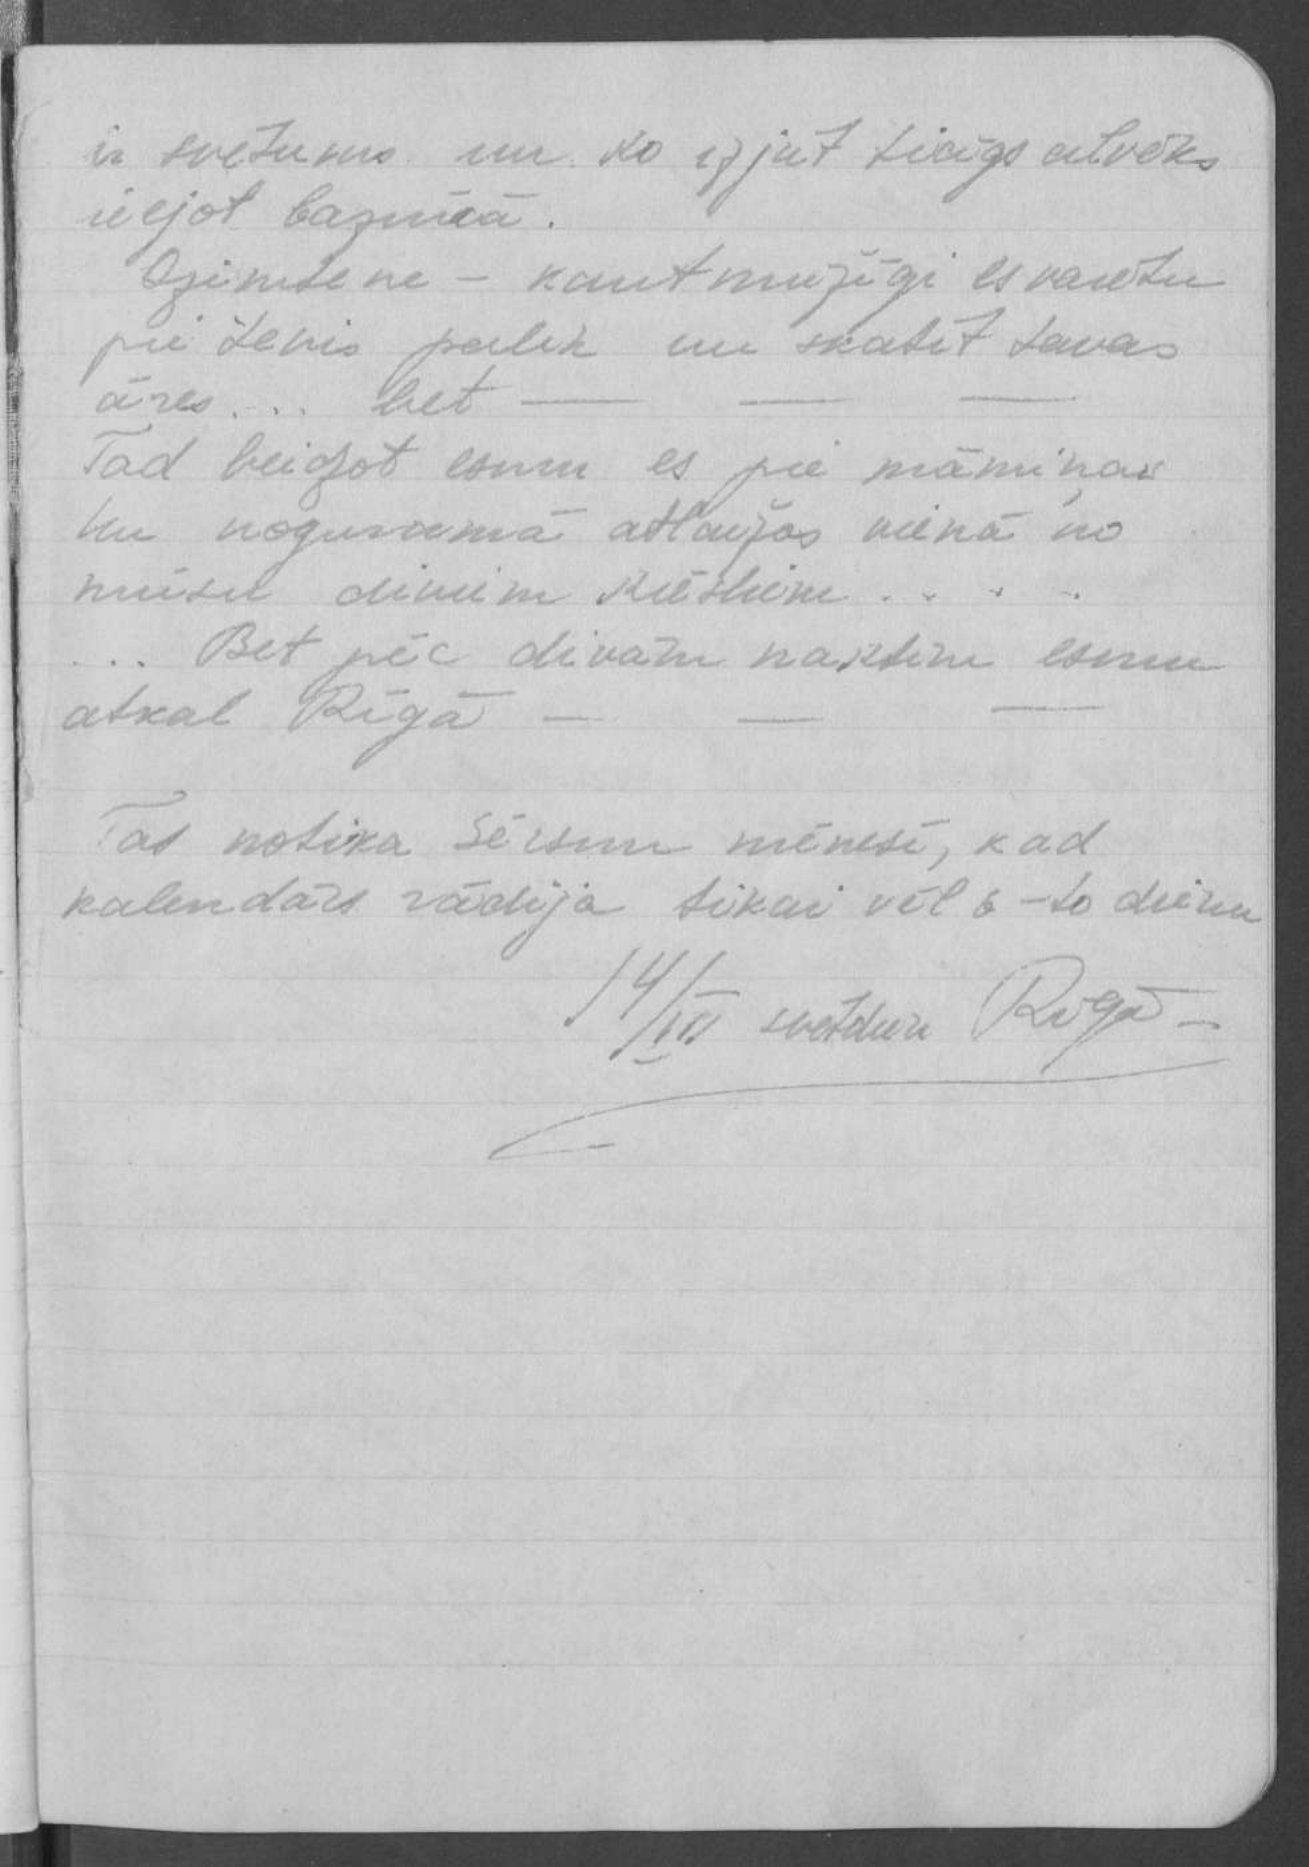 ir svētums un ko izjūt ticīgs cilvēks
ieejot baznīcā.
Dzimtene – kaut mūžīgi es varētu
pie tevis palik un skatīt tavas
āres.... bet — — —
Tad beidzot esmu es pie māmiņas
un nogurumā atlaižos vienā no
mūsu diviem krēsliem . . . .
... Bet pēc divām naktīm esmu
atkal Rīgā — — —
Tas notika Sērsnu mēnesī, kad
kalendārs rādīja tikai vēl 6-to dienu
14/III svētdien Rīgā –